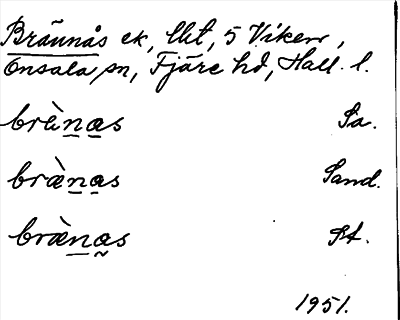 Brännås ek, Utt, 5 Viken,
Onsala sn, Fjäre hd, Hall. l.
brä̀nas Sa.
bræ̀nas Sand.
bræ̀nas St.
1951.